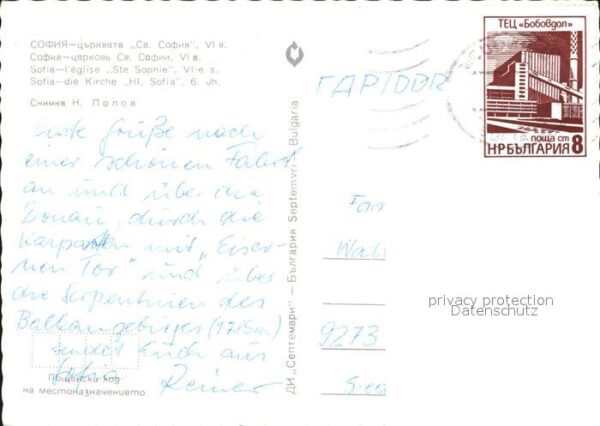 СОФИЯ—църквата „Св. София", VI в.
София—церковь Св. Софии, VI в.
Sofia—l'église "Ste Sophie". VI-e s.
Sofia—die Kirche "Hl, Sofia", 6. Jh.
Снимка Н. Попов
Grüße nach
einer schönen Fahrt
an und über die
Donau, durch die
Karpaten mit „Eiser-
nen Tor" und über
die Serpentinen des
Balkangebirges (1725m)
sendet Euch aus
Sofia Reiner
Пощенски код
на местоназначението
ДИ „Септември" — България Septemvri — Bulgaria
ГДР DDR
ТЕЦ «Бобовдол»
поща ст 8
НР БЪЛГАРИЯ
Fam
Wal
9273
privacy protection
Datenschutz